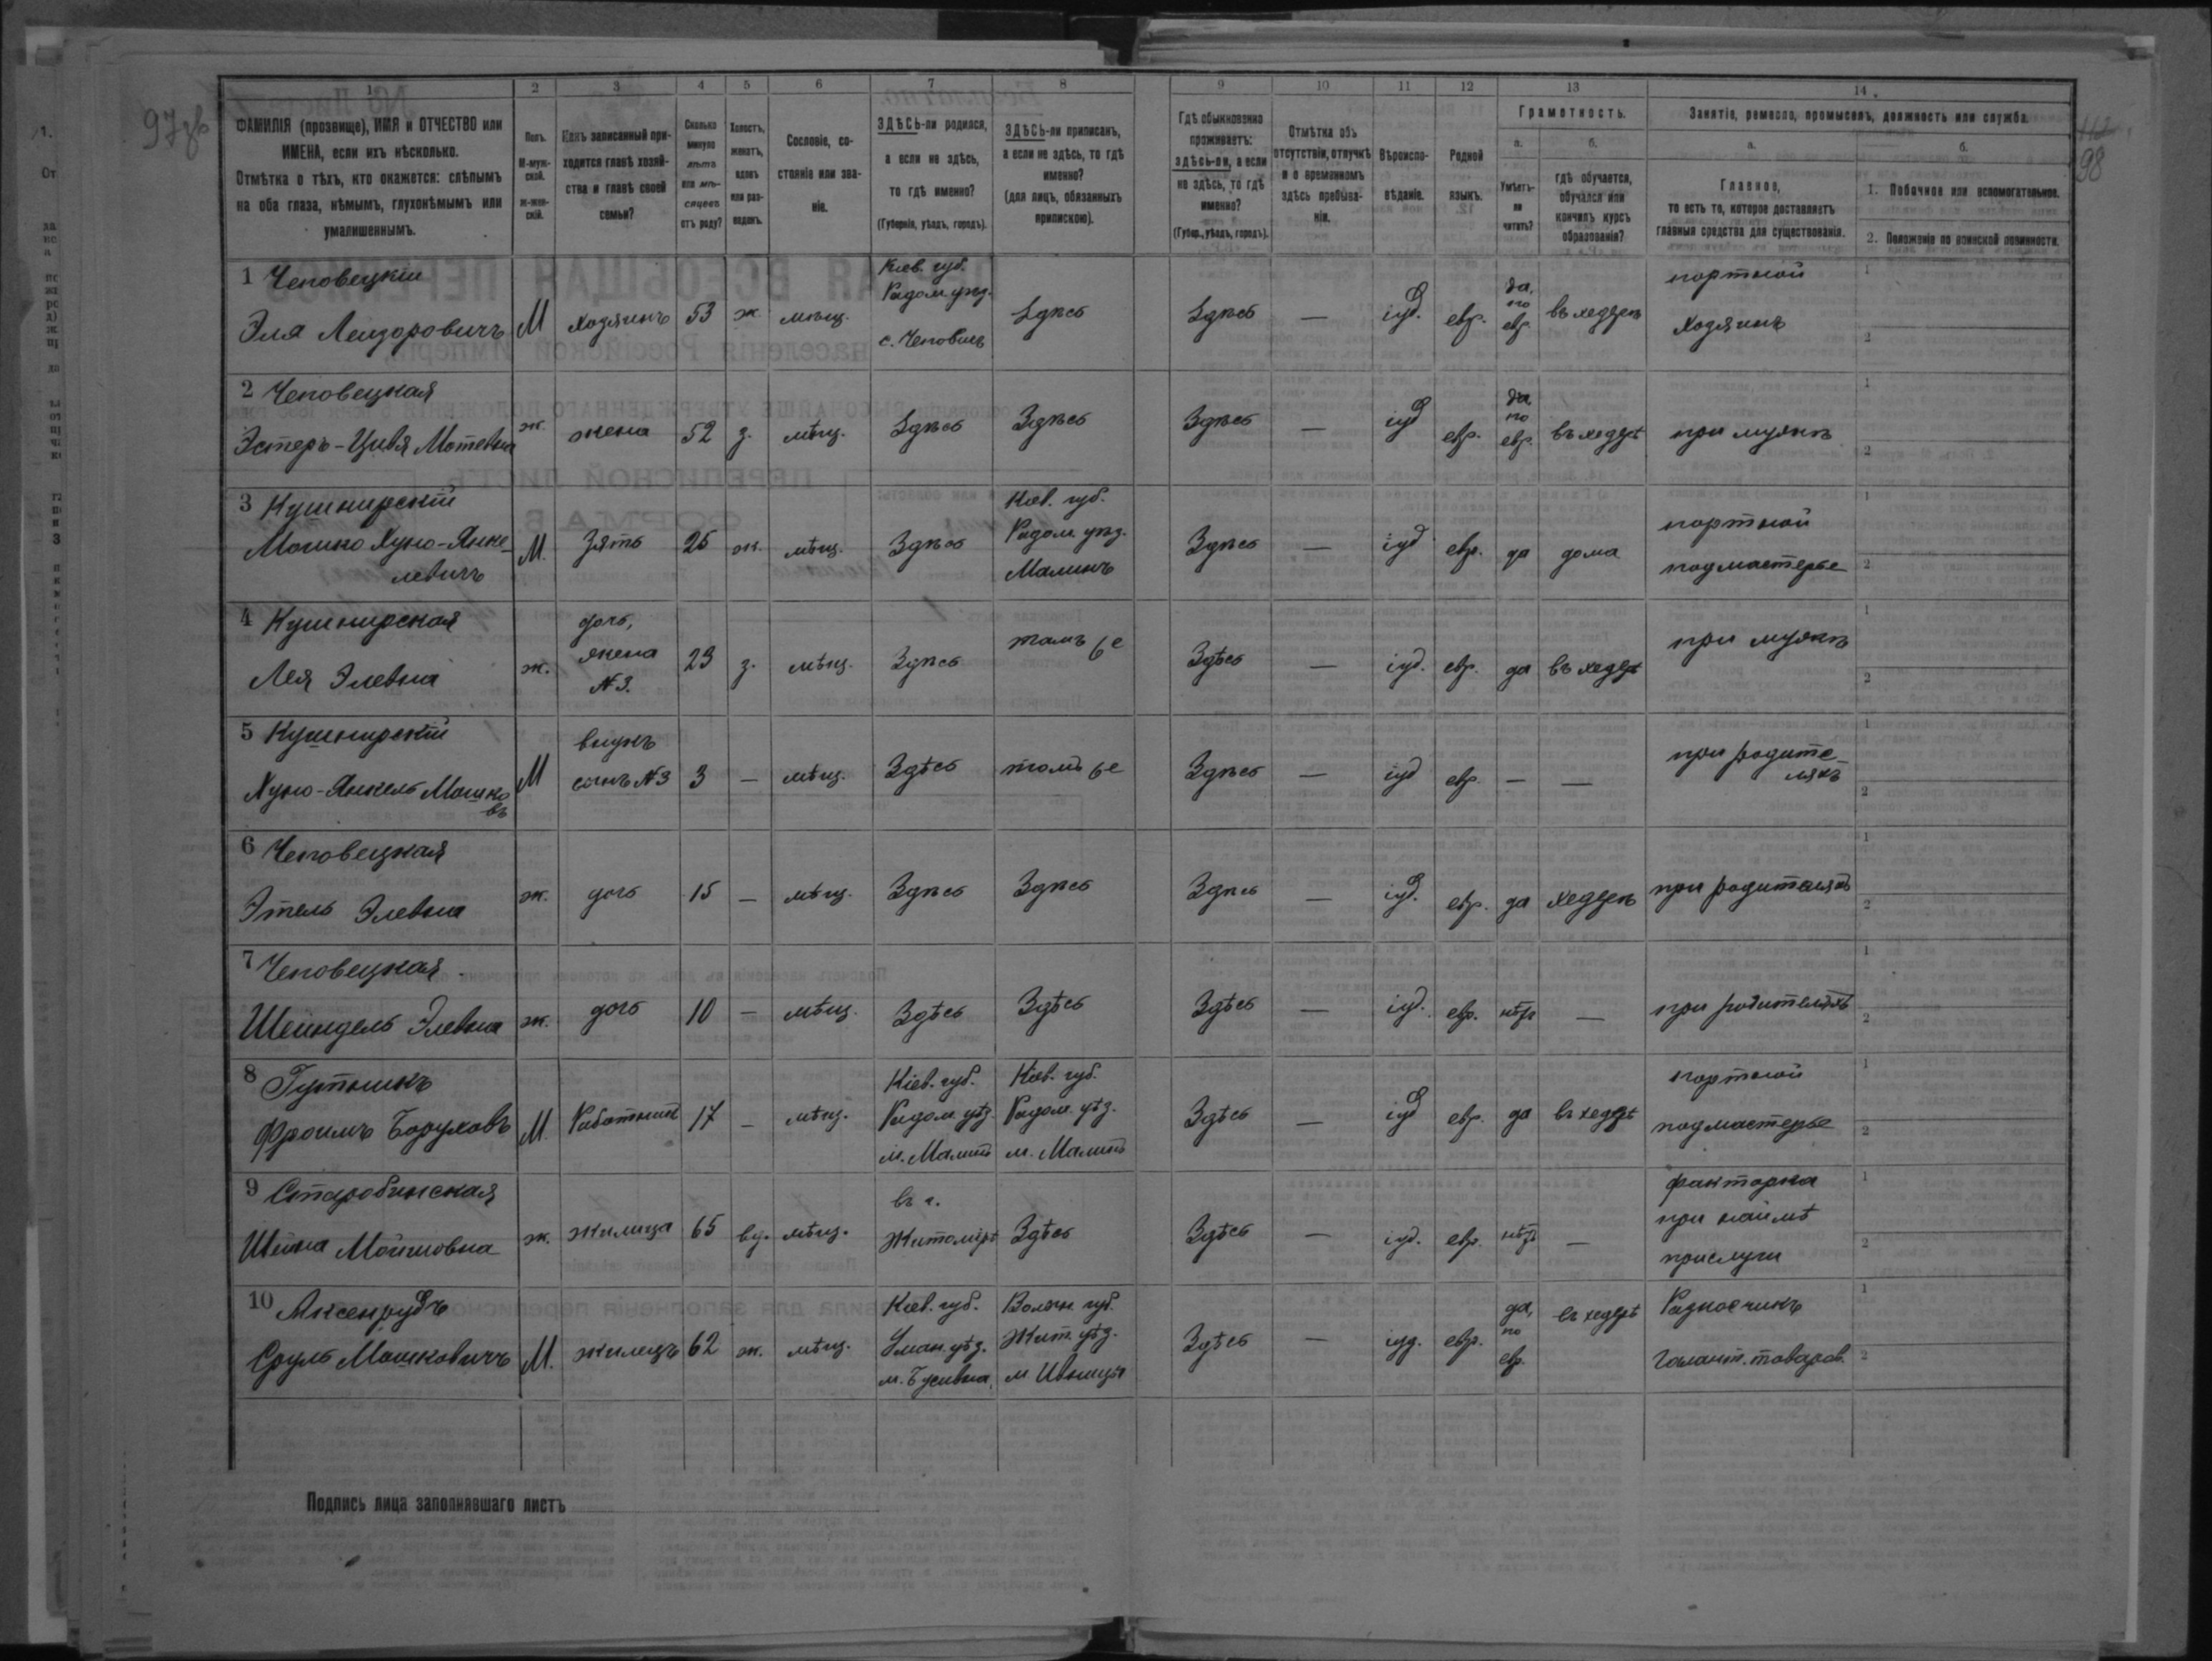 97об
112
98
1 2 3 4 5 6 7 8 9 10 11 12 13 14
ФАМИЛІЯ (прозвище), ИМЯ и ОТЧЕСТВО или
ИМЕНА, если ихъ нѣсколько.
Отмѣтка о тѣхъ, кто окажется: слѣпымъ
на оба глаза, нѣмымъ, глухонѣмымъ или
умалишеннымъ.
Полъ.
М-муж-
ской.
ж-жен-
скій.
Какъ записанный при-
ходится главѣ хозяй-
ства и главѣ своей
семьи?
Сколько
минуло
лѣтъ
или мѣ-
сяцевъ
отъ роду?
Холостъ,
женатъ,
вдовъ
или раз-
веденъ.
Сословіе, со-
стояніе или зва-
ніе.
ЗДѢСЬ-ли родился,
а если не здѣсь,
то гдѣ именно?
(Губернія, уѣздъ, городъ).
ЗДѢСЬ-ли приписанъ,
а если не здѣсь, то гдѣ
именно?
(для лицъ, обязанныхъ
припискою).
Гдѣ обыкновенно
проживаетъ:
здѣсь-ли, а если
не здѣсь, то гдѣ
именно?
(Губер., уѣздъ, городъ).
Отмѣтка объ
отсутствіи, отлучкѣ
и о временномъ
здѣсь пребыва-
ніи.
Вѣроиспо-
вѣданіе.
Родной
языкъ.
Грамотность.
а.
Умѣетъ-
ли
читать?
б.
гдѣ обучается,
обучался или
кончилъ курсъ
образованія?
Занятіе, ремесло, промыселъ, должность или служба.
а.
Главное,
то есть то, которое доставляетъ
главныя средства для существованія.
б.
1. Побочное или вспомогательное.
2. Положеніе по воинской повинности.
1 Чеповецкій
Эля Лейзоровичъ
М
хозяинъ
53
ж
мѣщ.
Кіев. губ.
Радом. уѣзд.
с. Чеповичъ
Здѣсь
Здѣсь
—
іуд.
евр.
да,
по
евр.
въ хедерѣ
портной
хозяинъ
1
2
2 Чеповецкая
Эстеръ-Цивя Мотевна
ж.
жена
52
з.
мѣщ.
Здѣсь
Здѣсь
Здѣсь
—
іуд
евр.
да
по
евр.
въ хедерѣ
при мужѣ
1
2
3 Кушнирскій
Мошко Хуно-Янке-
левичъ
М.
Зять
25
ж.
мѣщ.
Здѣсь
Кіев. губ.
Радом. уѣз.
Малинъ
Здѣсь
—
іуд
евр.
да
дома
портной
подмастерье
1
2
4 Кушнирская
Лея Элевна
ж.
дочь,
жена
№ 3.
23
з.
мѣщ.
Здѣсь
тамъ же
Здѣсь
—
іуд.
евр.
да
въ хедерѣ
при мужѣ
1
2
5 Кушнирскій
Хуно-Янкель Мошко
въ
М
внукъ
сынъ №3
3
—
мѣщ.
Здѣсь
тамъ же
Здѣсь
—
іуд
евр.
—
—
при родите-
ляхъ
1
2
6 Чеповецкая
Этель Элевна
ж.
дочь
15
—
мѣщ.
Здѣсь
Здѣсь
Здѣсь
—
іуд.
евр.
да
хедерѣ
при родителяхъ
1
2
7 Чеповецкая
Шейндель Элевна
ж.
дочь
10
—
мѣщ.
Здѣсь
Здѣсь
Здѣсь
—
іуд.
евр.
нѣтъ
—
при родителяхъ
1
2
8 Гутникъ
Фроимъ Боруховъ
М.
Работникъ
17
—
мѣщ.
Кіев. губ.
Радом. уѣз.
м. Малинъ
Кіев. губ.
Радом. уѣз.
м. Малинъ
Здѣсь
—
іуд
евр.
да
въ хедерѣ
портной
подмастерье
1
2
9 Старобинская
Шейна Мойшовна
ж.
жилица
65
вд.
мѣщ.
въ г.
Житомірѣ
Здѣсь
Здѣсь
—
іуд.
евр.
нѣтъ
—
факторка
при наймѣ
прислуги
1
2
10 Аксенрудъ
Сруль Мошковичъ
М.
жилецъ
62
ж.
мѣщ.
Кіев. губ.
Уман. уѣз.
Волын. губ.
Жит. уѣз.
м Ивница
Здѣсь
—
іуд.
евр.
да,
по
евр.
въ хедерѣ
Разносчикъ
галант. товаров.
1
2
Подпись лица заполнявшаго листъ